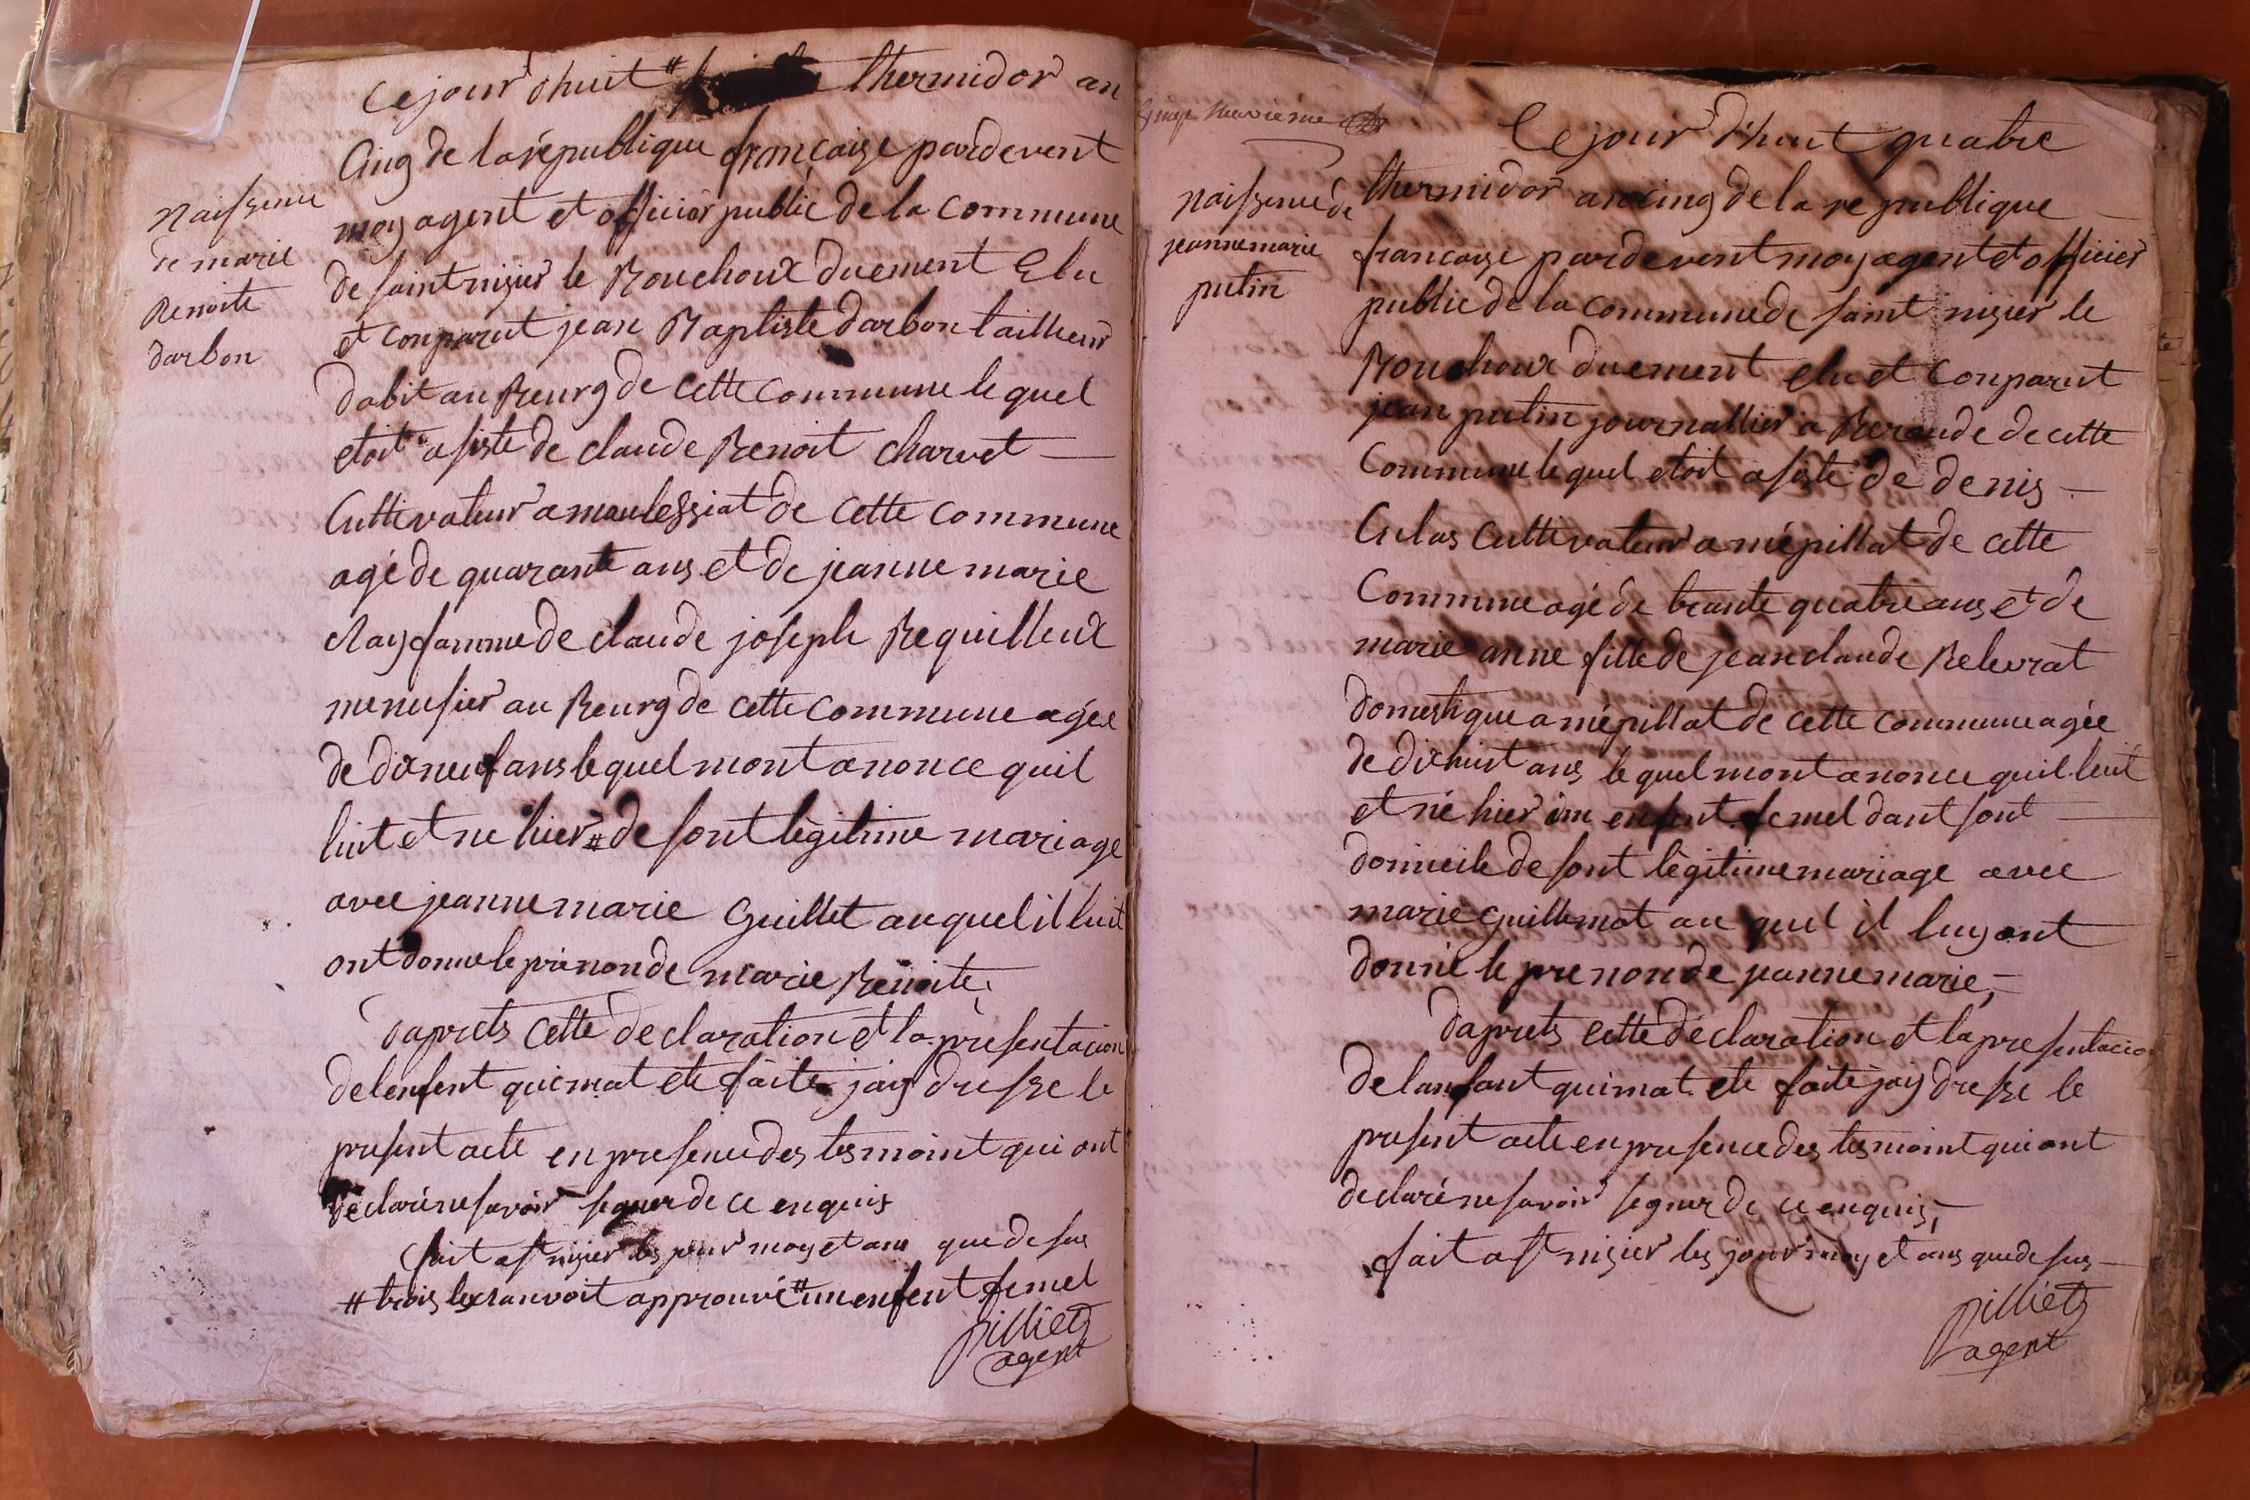 Cejour dhuit # thermidor an
Cinq de la république françaige pardevent
moy agent et officier public de la commune
de saint nizier le Bouchoux duement Elu
et conparut jean Baptiste darbon tailleur
dabit au Bourg de cette commune le quel
etoit asiste de claude Benoit charvet
Cultivateur a
de cette commune
agé de quarante ans et de jeanne marie
famme de claude joseph Bequilleux
menusier au Bourg de cette commune agée
de dixneuf ans lequel mont anoncé quil
luit et ne hier # de sont legitime mariage
avec jeanne marie Guillet auquel il luit
ont donné le prénon de marie Benoite,
daprets cette declaration et la presentacion
de lenfent qui mat ete faite jay dresse le
present acte en presence des tesmoint qui ont
déclaré ne savoir segner de ce enquis
fait a st nizier les jour moy et ans que de sus
# trois
approuvé # un enfent femel
pilliet
agent
naissence
de marie
Benoite
darbon
Cejour dhuit quatre
thermidor an cinq de la republique
francaige pardevent moy agent et officier
public de la commune de saint nizier le
Bouchoux duement elu et Conparut
jean putin journallier a Beraude de cette
Commune le quel etoit asiste de denis
Culas Cultivateur a mépillat de cette
Commune agé de trante quatre ans et de
marie anne fille de jean claude Belevrat
domestique a mépillat de cette commune agée
de dixhuit ans le quel mont anonce quil luit
et né hier un enfent femel dant sont
domicile de sont légitime mariage avec
marie Guillemot au quel il luy ont
donné le prenon de jeanne marie,
daprets cette déclaration et la presentacion
de lanfant qui mat ete faite jay dresse le
present acte en presence des tesmoint qui ont
declaré ne savoir segner de ce enquis,
fait a st nizier les jour moy et ans que de sus
pilliet
agent
naissence de
jeanne marie
putin